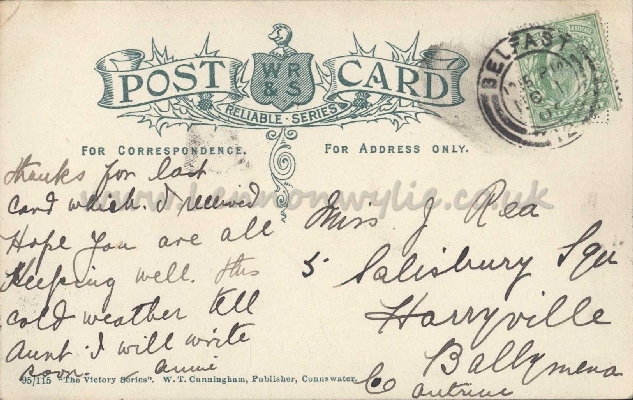 POST CARD
WR
& S
RELIABLE SERIES
FOR CORRESPONDENCE.
FOR ADDRESS ONLY.
BELFAST
thanks for last
card which I received
Hope you are all
Keeping well. this
cold weather tell
Aunt I will write
soon. Annie
Miss J Rea
5 Salisbury Squ
Harryville
Ballymena
Co Antrim
www.lennonwylie.co.uk
95/115 "The Victory Series". W. T. Cunningham, Publisher, Connswater.